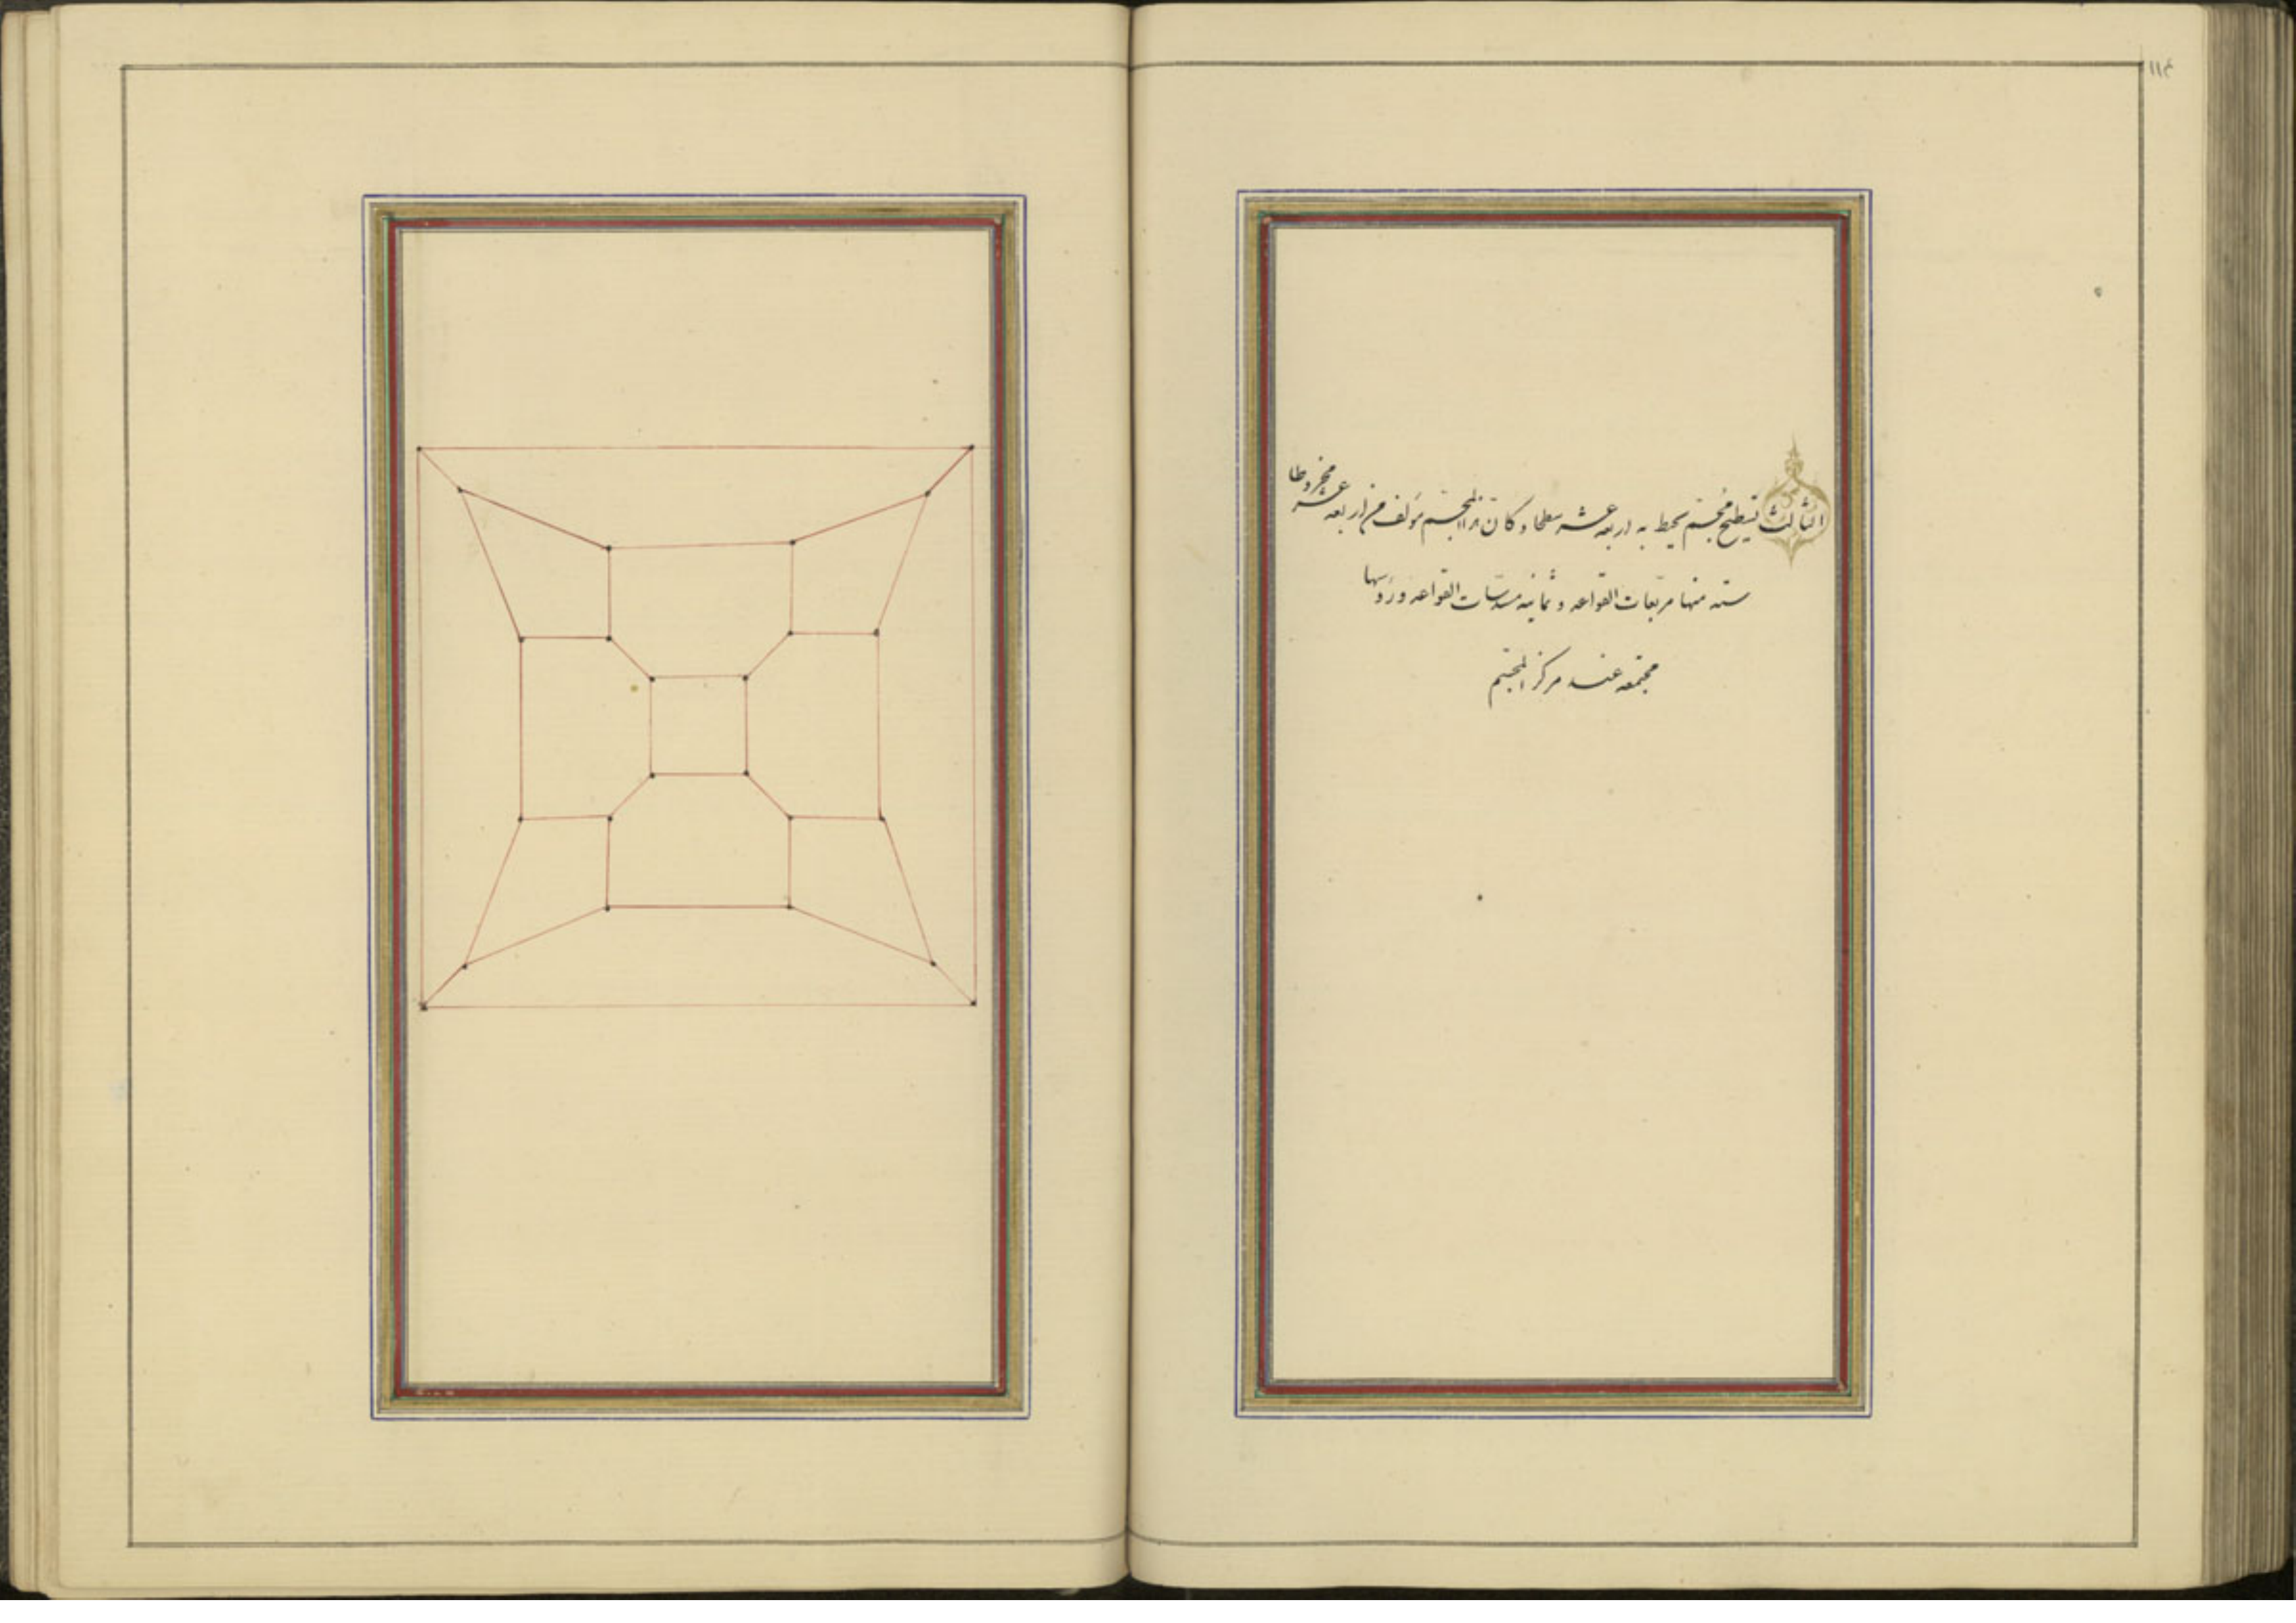 ١١٤
الثالث تسطيح مجسّم يحيط به اربعة عشر سطحا وكان هذا المجسّم مؤلف من اربعة عشر مخروطا
ستة منها مربعات القواعد وثمانية مسدّسات القواعد ورؤسها
مجتمعة عند مركز المجسّم